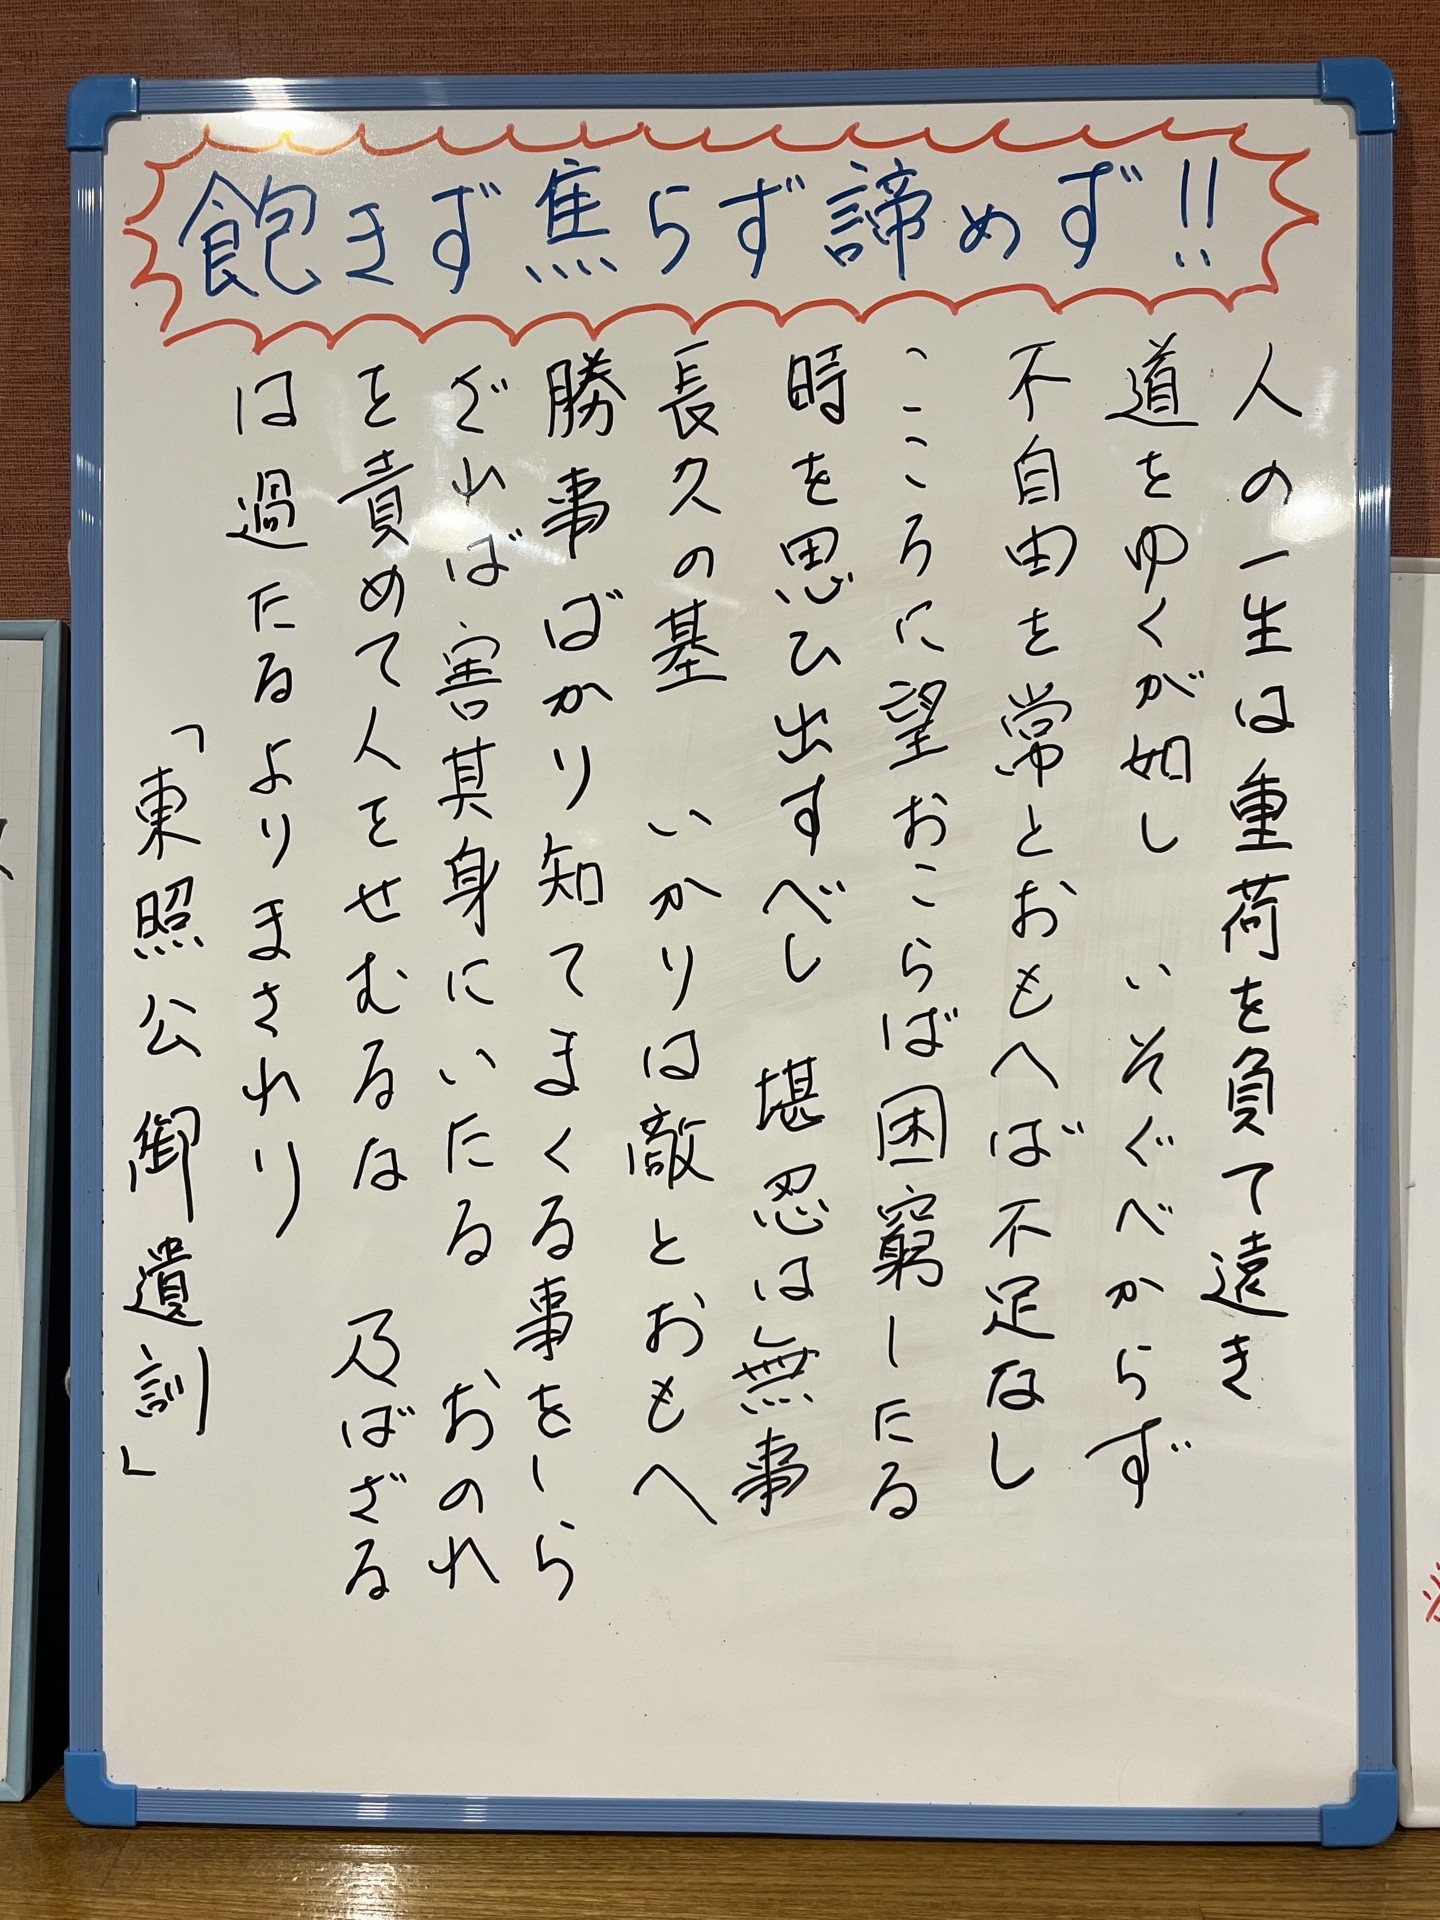 飽きず焦らず諦めず!!
人の一生は重荷を負て遠き
道をゆくが如し いそぐべからず
不自由を常とおもへば不足なし
こころに望おこらば困窮したる
時を思ひ出すべし 堪忍は無事
長久の基 いかりは敵とおもへ
勝事ばかり知てまくる事をしら
ざれば害其身にいたる おのれ
を責めて人をせむるな 及ばざる
は過たるよりまされり
「東照公御遺訓」